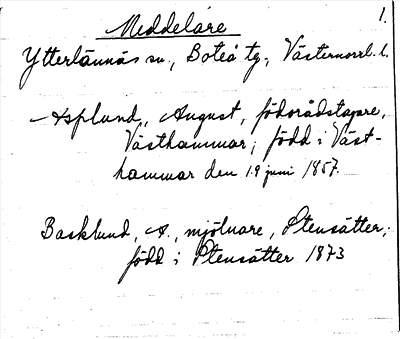 Meddelare
1.
Ytterlännäs sn., Boteå tg., Västernorrl. l.
Asplund, August, födorådstagare,
Västhammar, född i Väst-
hammar den 19 juni 1857.
Backlund, A., mjölnare, Stensätter,
född i Stensätter 1873